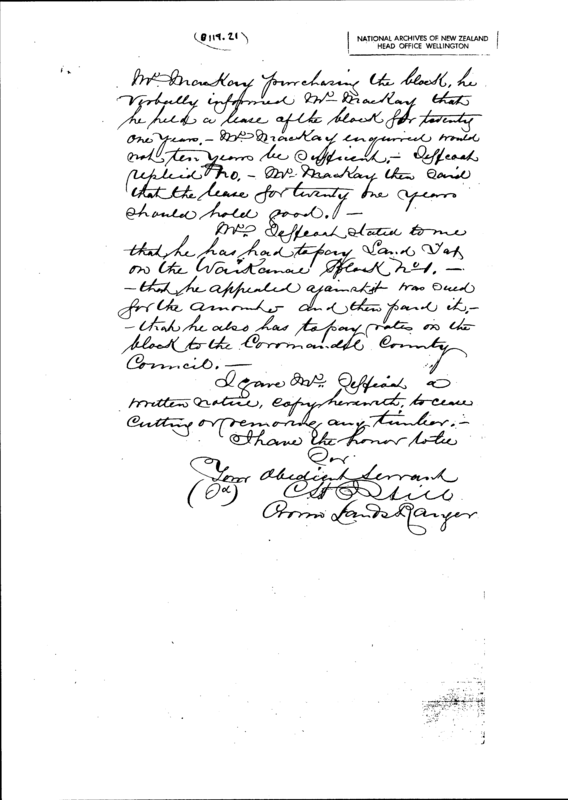 (B119.21)
NATIONAL ARCHIVES OF NEW ZEALAND
HEAD OFFICE WELLINGTON
Mr. MacKay purchasing the block, he
verbally informed Mr. MacKay that
he held a lease of the block for twenty
one years. - Mr. MacKay enquired would
not ten years be sufficient, -
replied No. - Mr. MacKay then said
that the lease for twenty one years
should hold good. -
Mr. stated to me
that he has had to pay Land Tax
on the Block No 1. -
- that he appealed against it was sued
for the amount and then paid it, -
- that he also has to pay rates on the
block to the Coromandel County
Council. -
I gave Mr. a
written notice, copy herewith, to cease
cutting or removing any timber. -
I have the honor to be
Sir
Your obedient Servant
Lands Ranger